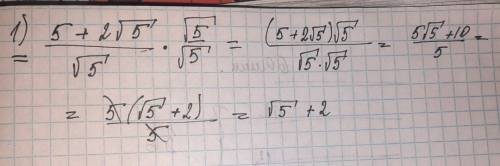 1) (5 + 2√5)/√5 · √5/√5 = ((5+2√5)√5)/(√5·√5) = (5√5+10)/5 =
= (5(√5+2))/5 = √5 + 2